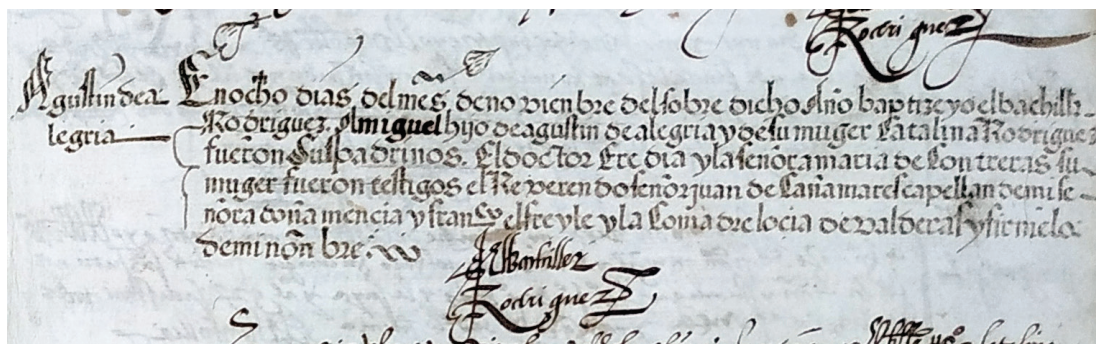 Rodriguez
Agustin de a
legria
En ocho dias del mes de noviembre del sobre dicho Año baptize yo el bachiller
Rodriguez. A miguel hijo de agustin de alegria y de su muger Catalina Rodriguez
fueron sus padrinos. El doctor Eredia y la señora maria de Contreras su
muger fueron testigos el Reverendo señor juan de Cañamares capellan de mi se
ñora doña mencia y franco el freyle y la Comadre locia de valderas y firmelo
de mi nonbre.
El Bachiller
Rodriguez